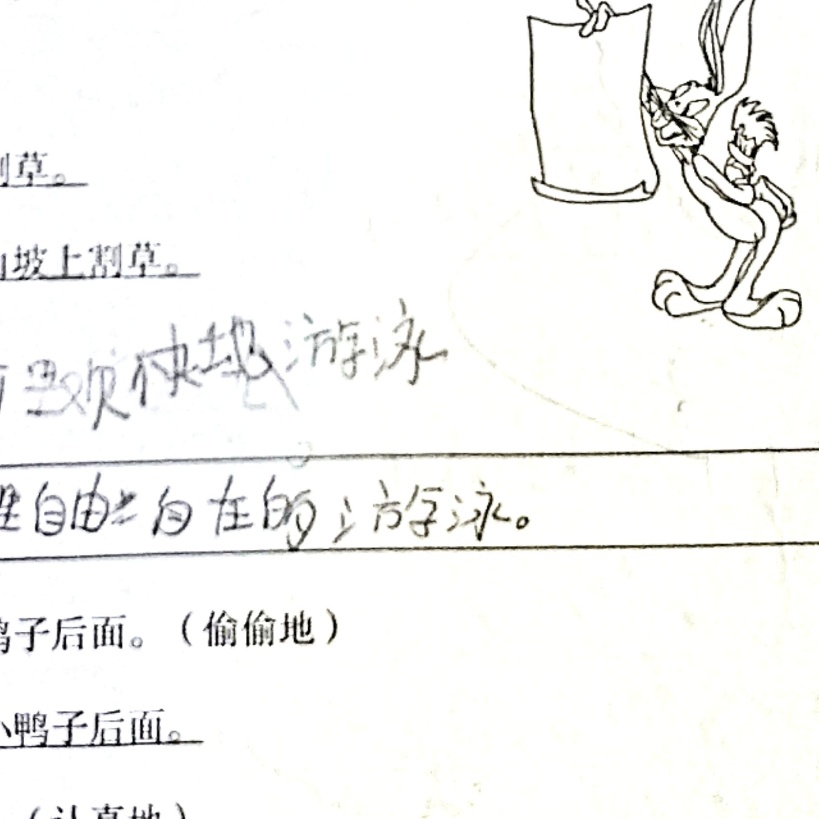 割草。
山坡上割草。
欢快地游泳
自由自在的游泳。
鸭子后面。（偷偷地）
小鸭子后面。
（认真地）